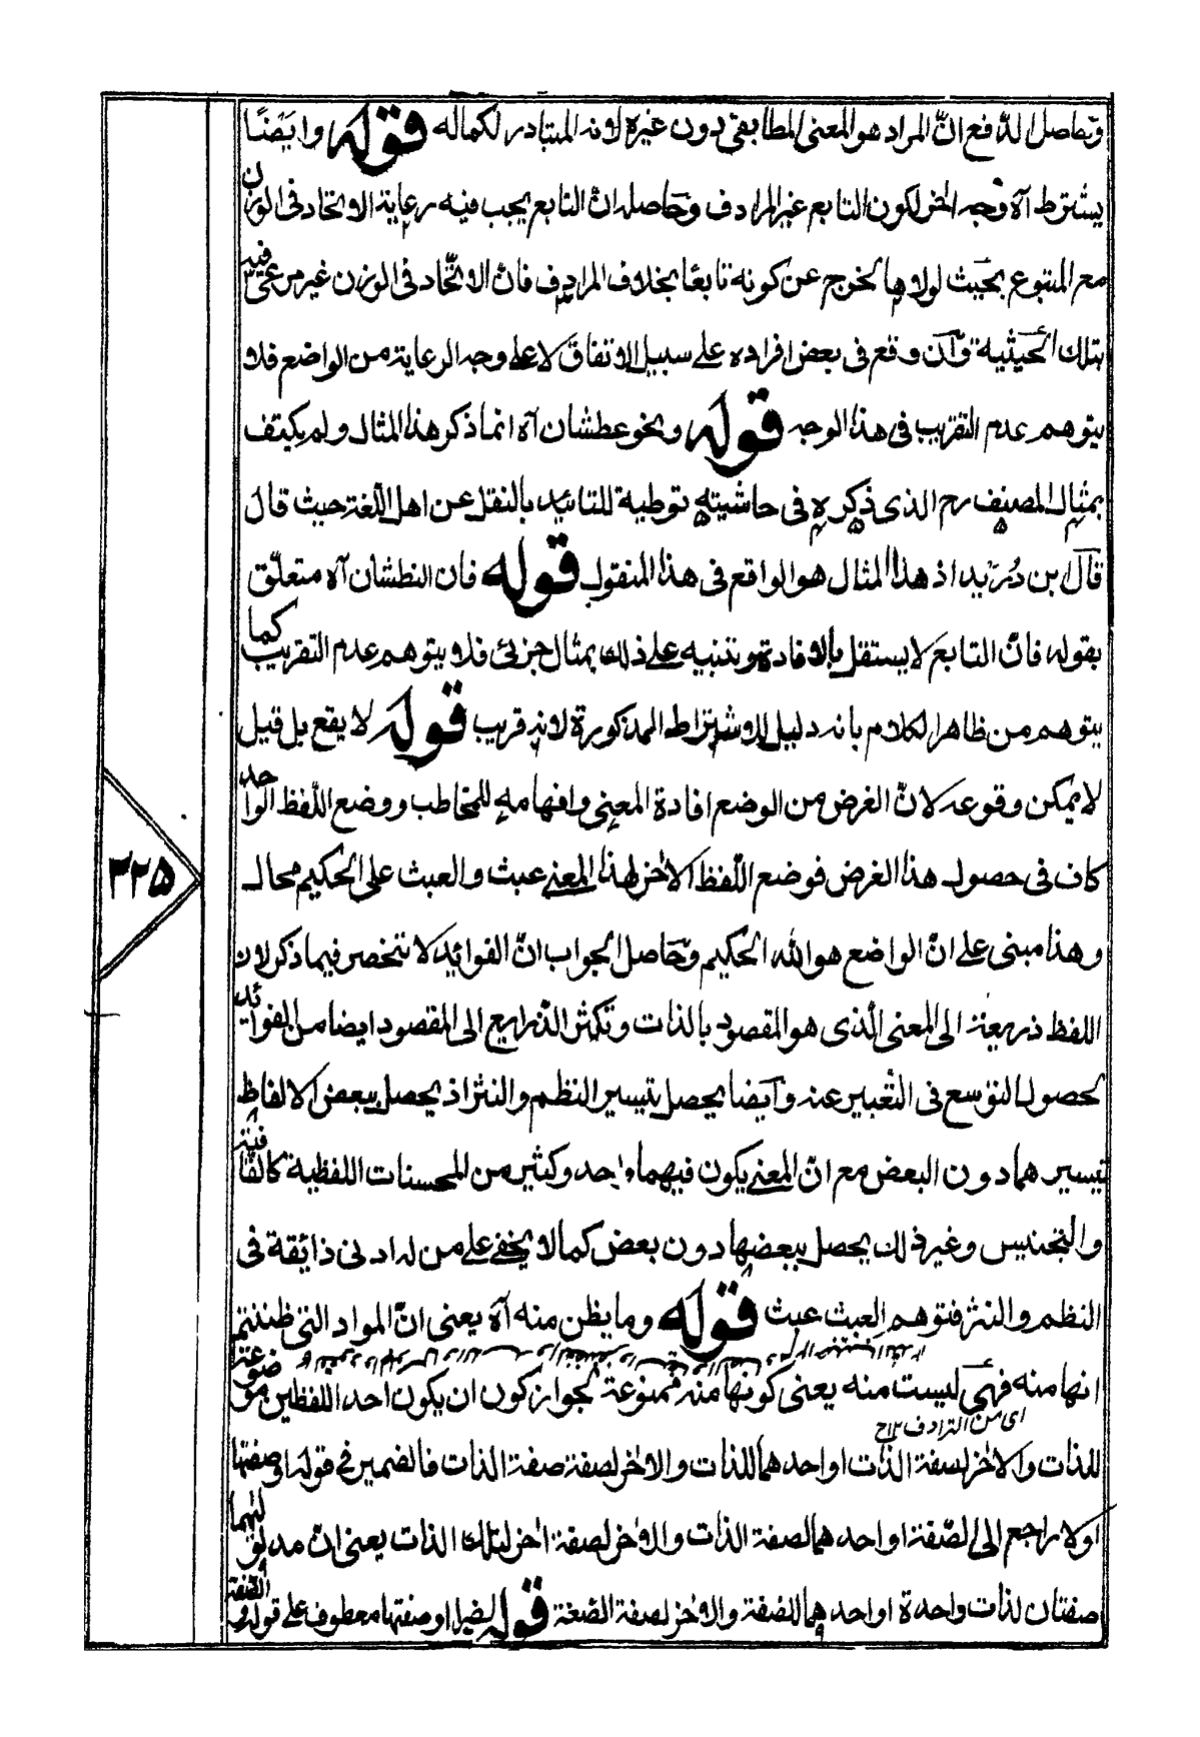 وحاصل الدفع انّ المراد هو المعنى المطابقي دون غيره لانه المتبادر لكماله قوله وايضًا
يشترط آه وجه اخر لكون التابع غير المرادف وحاصله انّ التابع يجب فيه رعاية الاتحاد فى الوزن
مع المتبوع بحيث لولاها لخرج عن كونه تابعًا بخلاف المرادف فانّ الاتّحاد فى الوزن غير مرعى فيه
بتلك الحيثية وان وقع فى بعض افراده على سبيل الاتفاق لا على وجه الرعاية من الواضع فلا
يتوهم عدم التقريب فى هذا الوجه قوله ونحو عطشان آه انما ذكر هذا المثال ولم يكتف
بمثال المصنف رح الذى ذكره فى حاشيته توطية للتائيد بالنقل عن اهل اللّغة حيث قال
قال بن دُرَيد اذ هذا المثال هو الواقع فى هذا المنقول قوله فان النطشان آه متعلّق
بقوله فانّ التابع لا يستقل بالافادة وتنبيه على ذلك بمثال جزئى فلا يتوهم عدم التقريب كما
يتوهم من ظاهر الكلام بانه دليل للاشتراط المذكورة لانه قريب قوله لا يقع بل قيل
لا يمكن وقوعه لانّ الغرض من الوضع افادة المعنى وافهامه للمخاطب ووضع اللّفظ الواحد
كاف فى حصول هذا الغرض فوضع اللّفظ الاٰخر لهذا المعنى عبث والعبث على الحكيم محال
وهذا مبنى على انّ الواضع هو الله الحكيم وحاصل الجواب انّ الفوائد لا تنحصر فيما ذكر لان
اللفظ ذريعة الى المعنى الّذى هو المقصود بالذات وتكثر الذرايع الى المقصود ايضا من الفوائد
لحصول التوسع فى التّعبير عنه وايضا يحصل تيسير النظم والنثر اذ يحصل ببعض الالفاظ
تيسيرهما دون البعض مع انّ المعنى يكون فيهما واحد وكثير من المحسنات اللفظية كالقافية
والتجنيس وغير ذلك يحصل ببعضها دون بعض كما لا يخفى على من له ادنى ذائقة فى
النظم والنثر فتوهم العبث عبث قوله وما يظن منه آه يعنى انّ المواد التى ظننتم
انها منه فهى ليست منه يعنى كونها منه ممنوعة لجواز كون ان يكون احد اللفظين موضوعة
اى من الترادف ١٢ ح
للذات والاٰخر لصفة الذات او احدهما للذات والاٰخر لصفة صفة الذات فالضمير فى قوله او صفتها
اولا راجع الى الصّفة او احدهما لصفة الذات والاٰخر لصفة اٰخر لتلك الذات يعنى انّ مدلوليهما
صفتان لذات واحدة او احدهما للصفة والاٰخر لصفة الصّفة قوله ايضا او صفتها معطوف على قوله الصّفة
٣٢٥